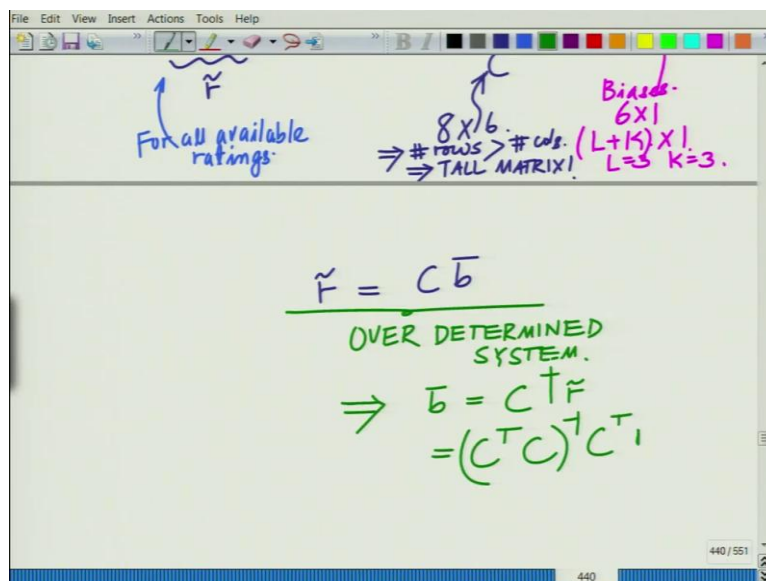 File Edit View Insert Actions Tools Help
B I
r̃
For all available
ratings.
C
8×6.
⇒ #rows > # cols.
⇒ TALL MATRIX!
Biases.
6×1
(L+K)×1.
L=3 K=3.
r̃ = C b̄
OVER DETERMINED
SYSTEM.
⇒ b̄ = C† r̃
= (CᵀC)⁻¹ Cᵀ
440 / 551
440